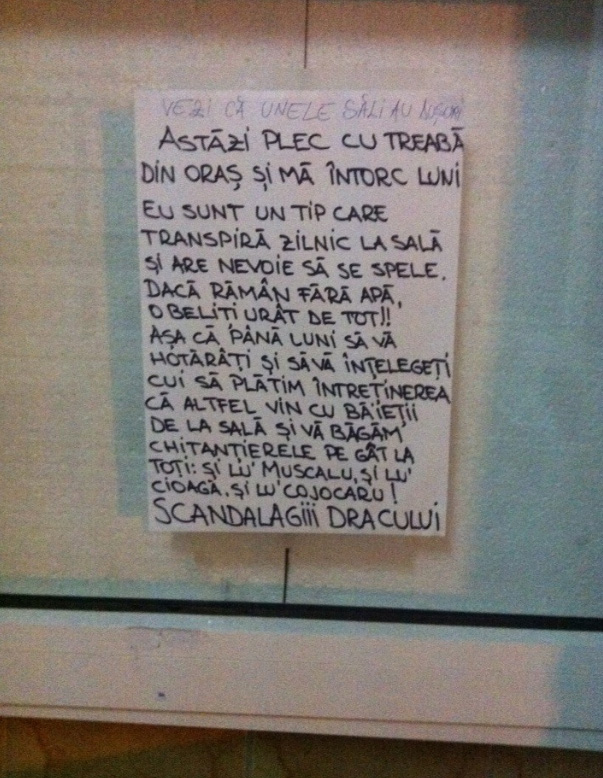 VEZI CĂ UNELE SĂLI AU DUȘURI
ASTĂZI PLEC CU TREABĂ
DIN ORAȘ ȘI MĂ ÎNTORC LUNI
EU SUNT UN TIP CARE
TRANSPIRĂ ZILNIC LA SALĂ
ȘI ARE NEVOIE SĂ SE SPELE.
DACĂ RĂMÂN FĂRĂ APĂ,
O BELIȚI URÂT DE TOT!!
AȘA CĂ, PÂNĂ LUNI SĂ VĂ
HOTĂRÂȚI ȘI SĂ VĂ ÎNȚELEGEȚI
CUI SĂ PLĂTIM ÎNTREȚINEREA
CĂ ALTFEL VIN CU BĂIEȚII
DE LA SALĂ ȘI VĂ BĂGĂM
CHITANȚIERELE PE GÂT LA
TOȚI: ȘI LU' MUSCALU, ȘI LU'
CIOAGĂ, ȘI LU' COJOCARU!
SCANDALAGIII DRACULUI